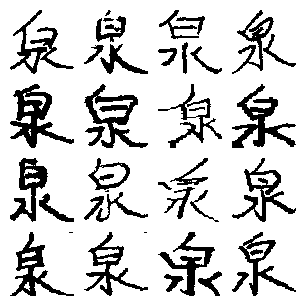 泉泉泉泉
泉泉泉泉
泉泉泉泉
泉泉泉泉